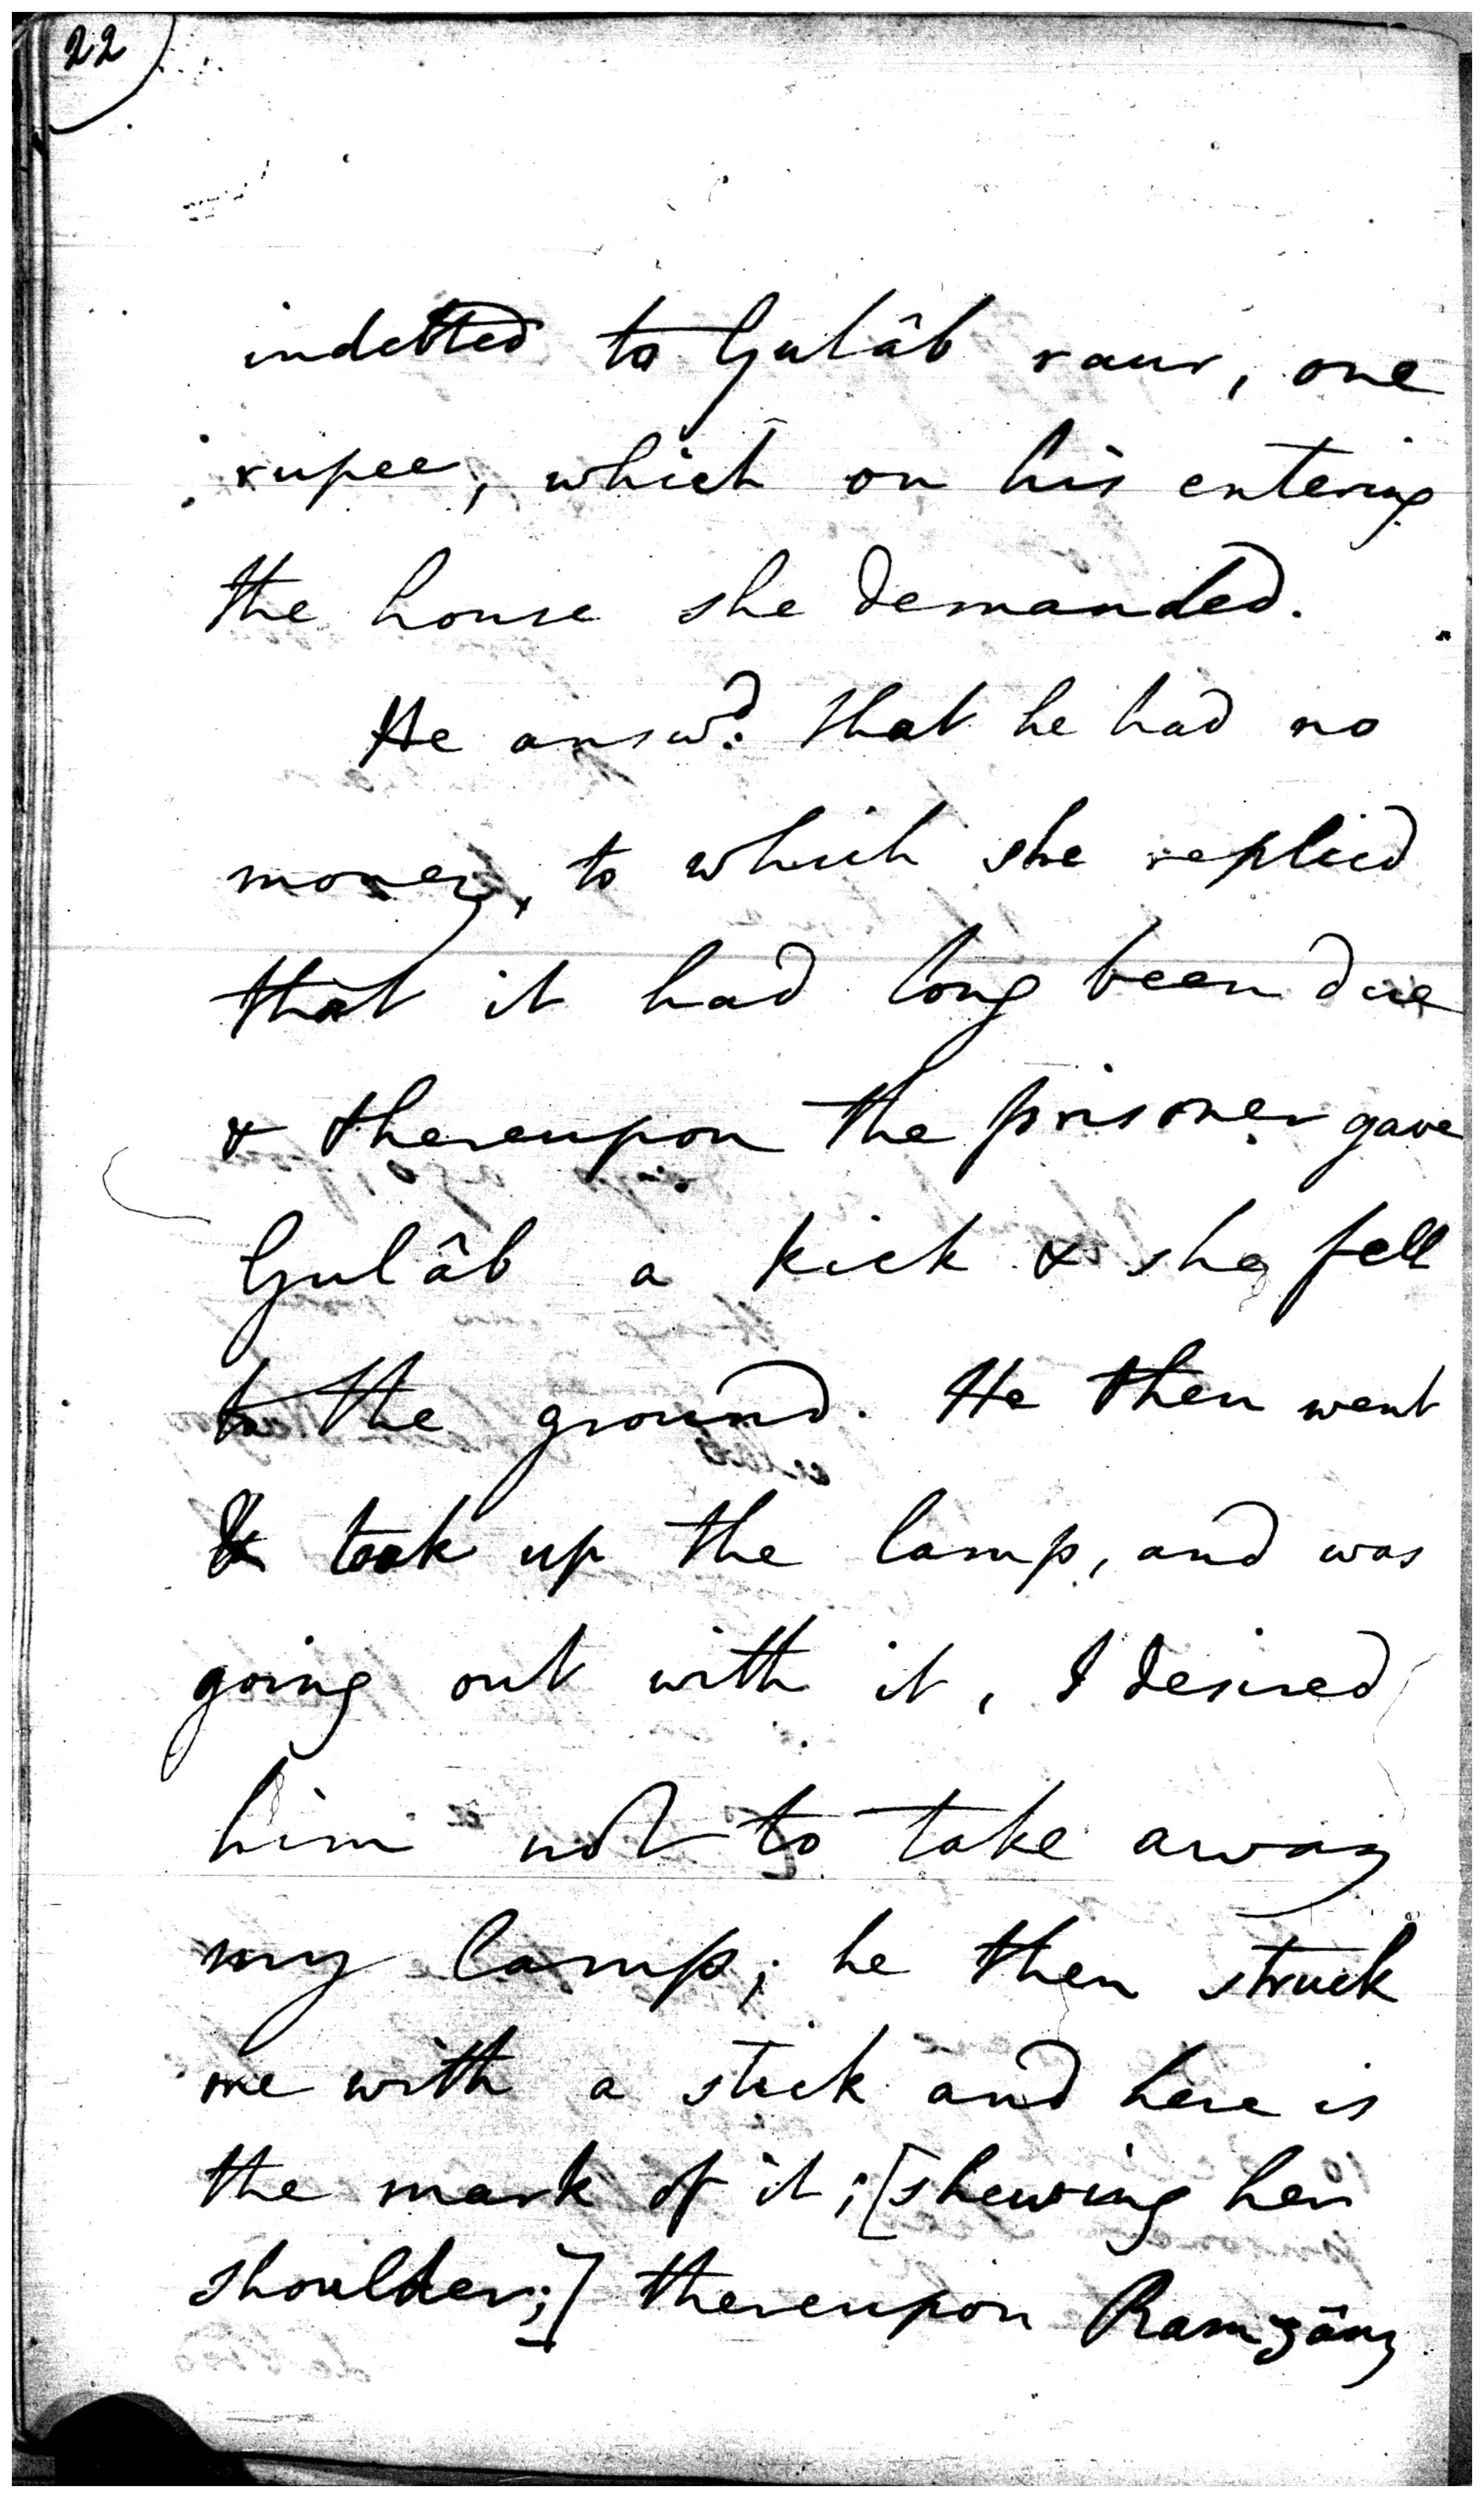 22
indebted to Gulâb raur, one
rupee, which on his entering
the house she demanded.
He answd. that he had no
money, to which she replied
that it had long been due
& thereupon the prisoner gave
Gulâb a kick & she fell
to the ground. He then went
& took up the lamp, and was
going out with it, I desired
him not to take away
my lamp; he then struck
me with a stick and here is
the mark of it; [shewing her
shoulder;] thereupon Ramzâny